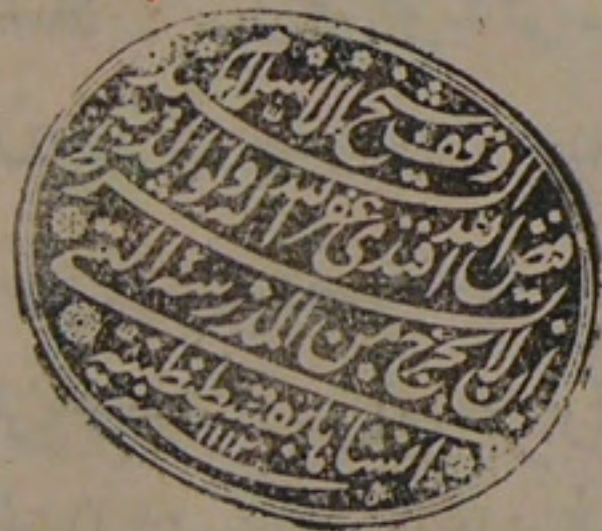 وقف شيخ الاسلام السيد
فيض الله افندى غفر الله له ولوالديه
بشرط ان لا يخرج من المدرسة التى
انشاها بقسطنطينية سنة ١١١٢